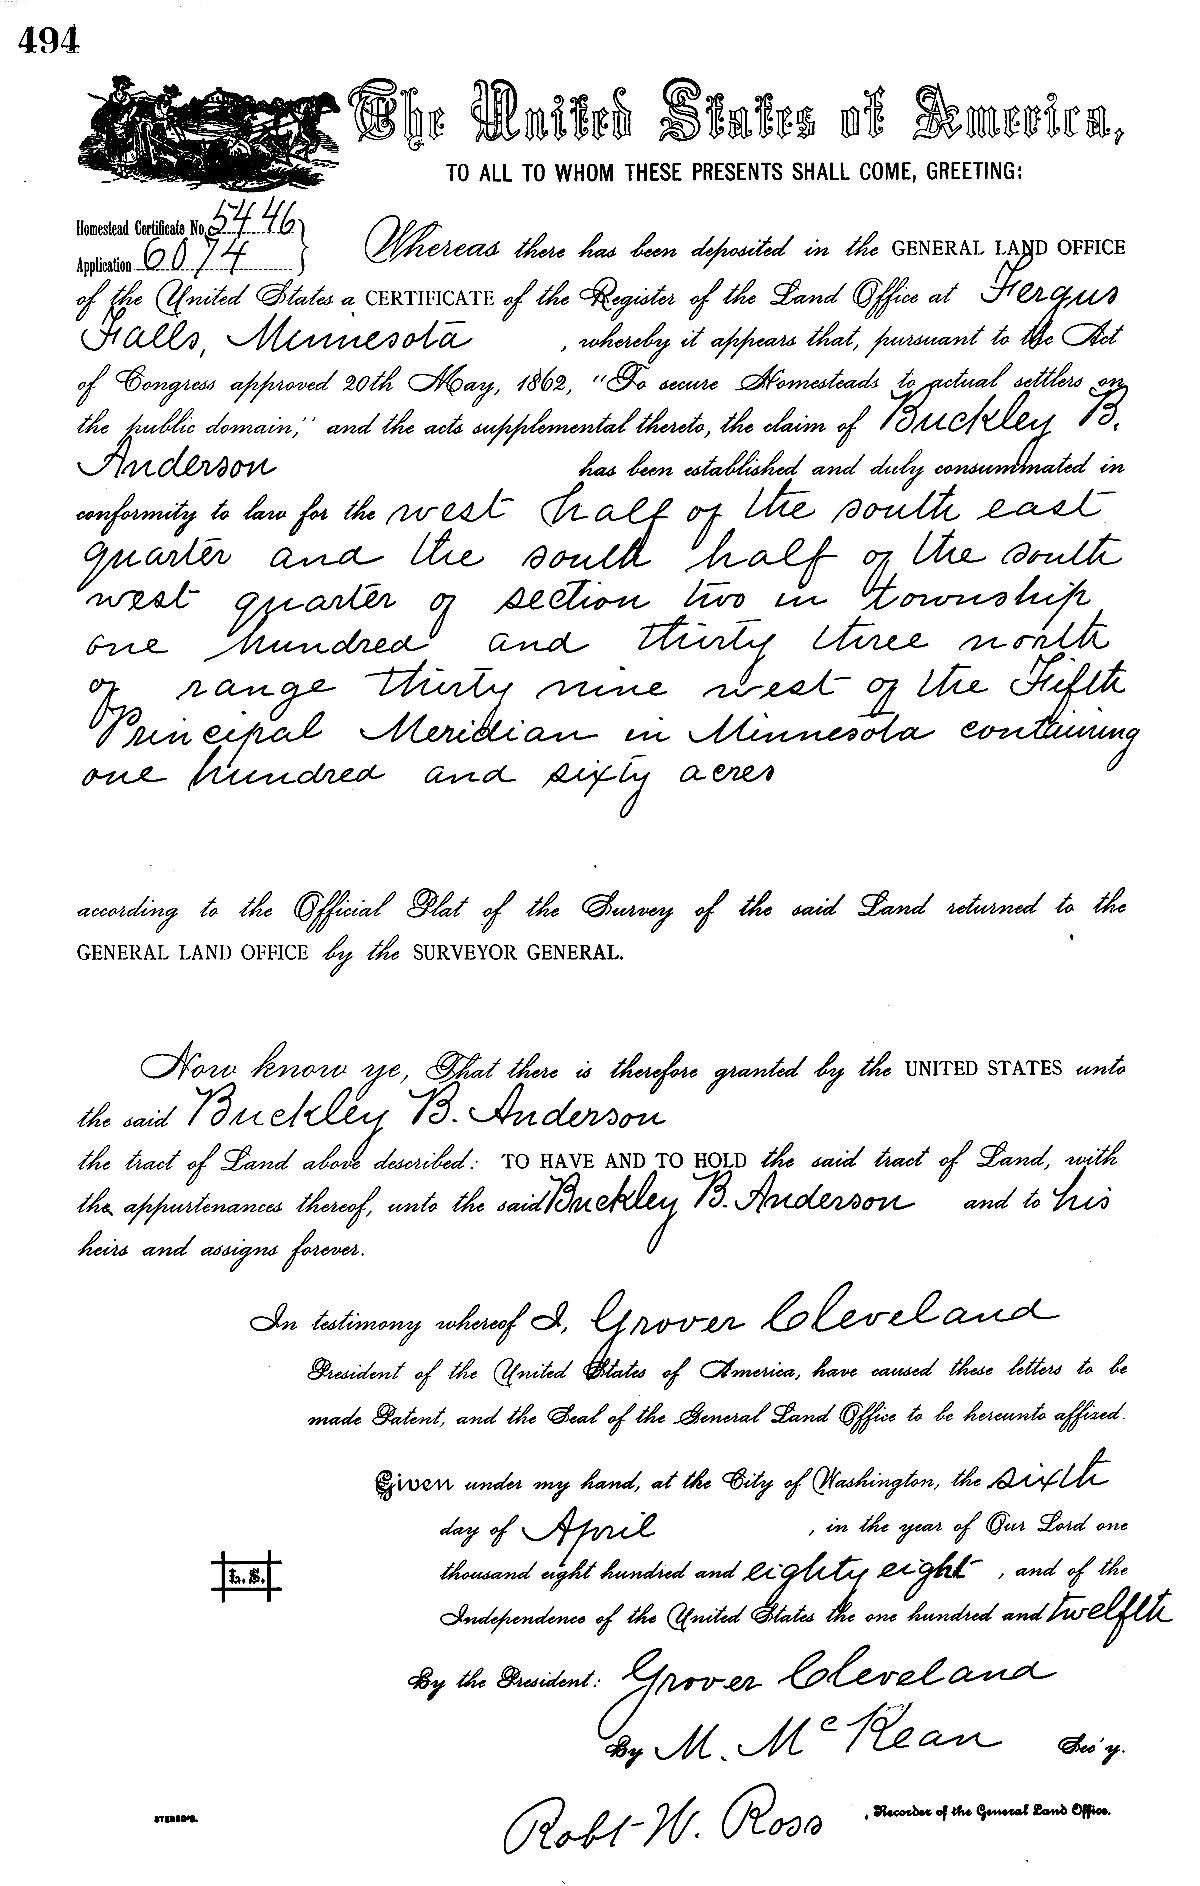 494
The United States of America,
TO ALL TO WHOM THESE PRESENTS SHALL COME, GREETING:
Homestead Certificate No. 5446
Application 6074
Whereas there has been deposited in the GENERAL LAND OFFICE
of the United States a CERTIFICATE of the Register of the Land Office at Fergus
Falls, Minnesota , whereby it appears that, pursuant to the Act
of Congress approved 20th May, 1862, "To secure Homesteads to actual settlers on
the public domain," and the acts supplemental thereto, the claim of Buckley B.
Anderson has been established and duly consummated in
conformity to law for the west half of the south east
quarter and the south half of the south
west quarter of section two in township
one hundred and thirty three north
of range thirty nine west of the Fifth
Principal Meridian in Minnesota containing
one hundred and sixty acres
according to the Official Plat of the Survey of the said Land returned to the
GENERAL LAND OFFICE by the SURVEYOR GENERAL.
Now know ye, That there is therefore granted by the UNITED STATES unto
the said Buckley B. Anderson
the tract of Land above described: TO HAVE AND TO HOLD the said tract of Land, with
the appurtenances thereof, unto the said Buckley B. Anderson and to his
heirs and assigns forever.
In testimony whereof I, Grover Cleveland
President of the United States of America, have caused these letters to be
made Patent, and the Seal of the General Land Office to be hereunto affixed.
Given under my hand, at the City of Washington, the sixth
day of April , in the year of Our Lord one
thousand eight hundred and eighty eight , and of the
L. S.
Independence of the United States the one hundred and twelfth
By the President: Grover Cleveland
By M. McKean Sec'y.
Robt W. Ross , Recorder of the General Land Office.